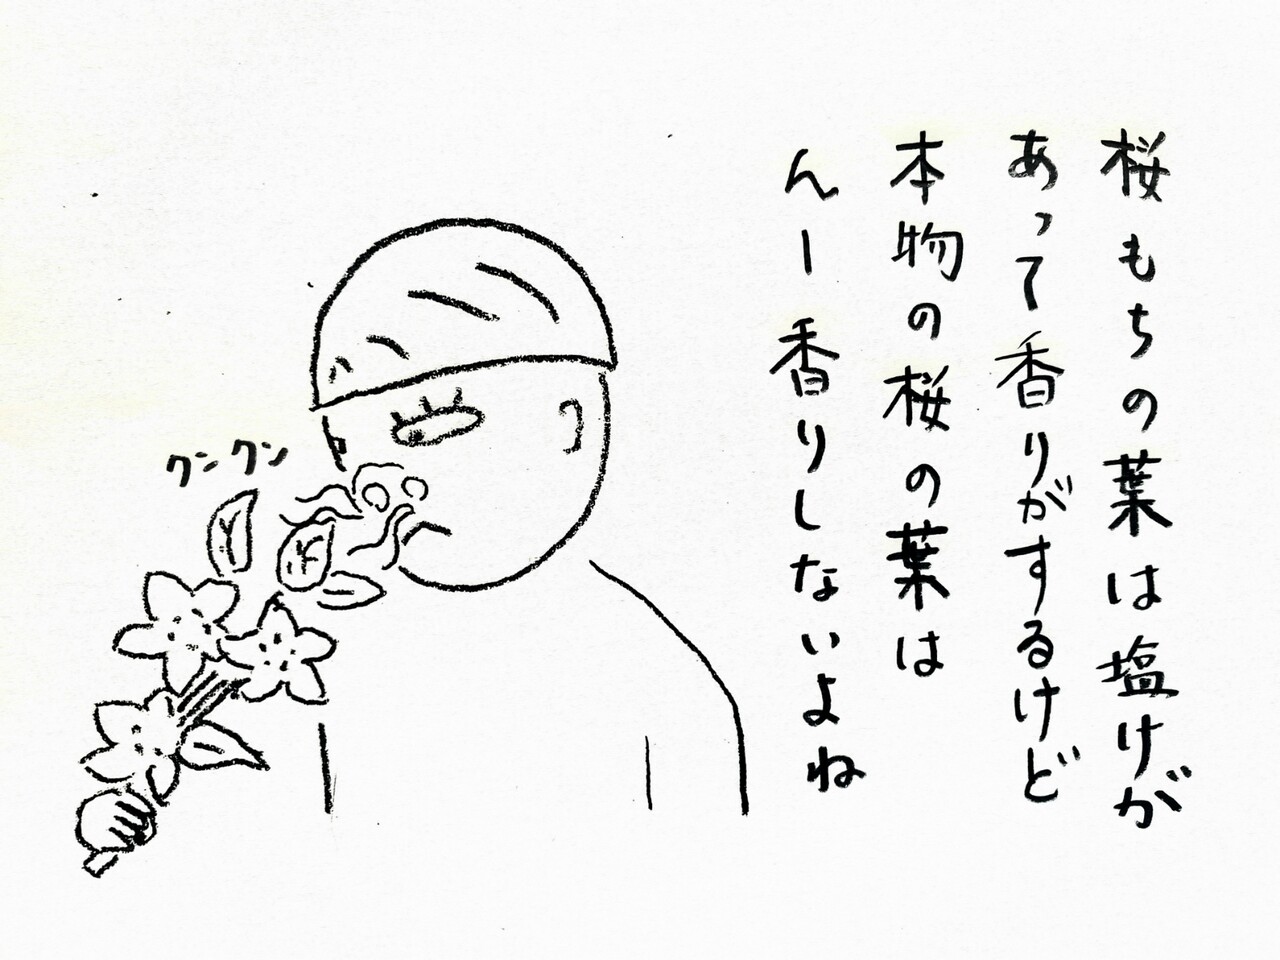 桜もちの葉は塩けが
あって香りがするけど
本物の桜の葉は
んー香りしないよね
クンクン